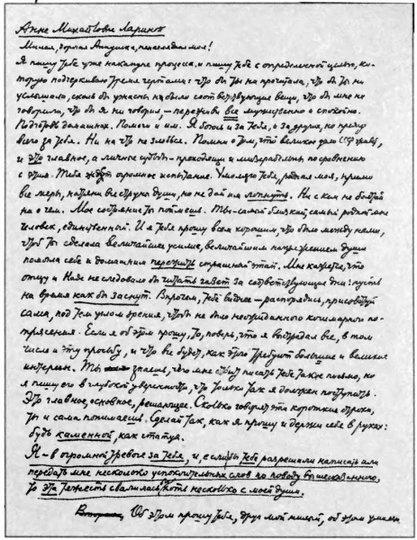 Анне Михайловне Лариной
Милая, дорогая Аннушка, ненаглядная моя!
Я пишу тебе уже накануне процесса, и пишу тебе с определенной целью, ко-
торую подчеркиваю тремя чертами: что бы ты ни прочитала, что бы ты ни
услышала, сколь бы ужасны ни были соответствующие вещи, что бы мне ни
говорили, что бы я ни говорил, — переживи все мужественно и спокойно.
Подготовь домашних. Помоги и им. Я боюсь и за тебя, и за других, но прежде
всего за тебя. Ни на что не злобься. Помни о том, что великое дело СССР живет,
и это главное, а личные судьбы — преходящи и мизерабельны по сравнению
с этим. Тебя ждет огромное испытание. Умоляю тебя, родная моя, прими
все меры, натяни все струны души, но не дай им лопнуть. Ни с кем не болтай
ни о чем. Мое состояние ты поймешь. Ты — самый близкий, самый родной мне
человек, единственный. И я тебя прошу всем хорошим, что было между нами,
чтоб ты сделала величайшее усилие, величайшим напряжением души
помогла себе и домашним пережить страшный этап. Мне кажется, что
отцу и Наде не следовало бы читать газет за соответствующие дни: пусть
на время как бы заснут. Впрочем, тебе виднее — распорядись, присоветуй
сама, под тем углом зрения, чтоб не было неожиданного кошмарного по-
трясения. Если я об этом прошу, то, поверь, что я выстрадал все, в том
числе и эту просьбу, и что все будет, как этого требуют большие и великие
интересы. Ты знаешь, чего мне стоит писать тебе такое письмо, но
я пишу его в глубокой уверенности, что только так я должен поступать.
Это главное, основное, решающее. Сколько говорят эти короткие строки,
ты и сама понимаешь. Сделай так, как я прошу, и держи себя в руках:
будь каменной, как статуя.
Я — в огромной тревоге за тебя, и, если бы тебе разрешили написать или
передать мне несколько успокоительных слов по поводу вышесказанного,
то эта тяжесть свалилась бы хоть несколько с моей души.
Об этом прошу тебя, друг мой милый, об этом умоляю.